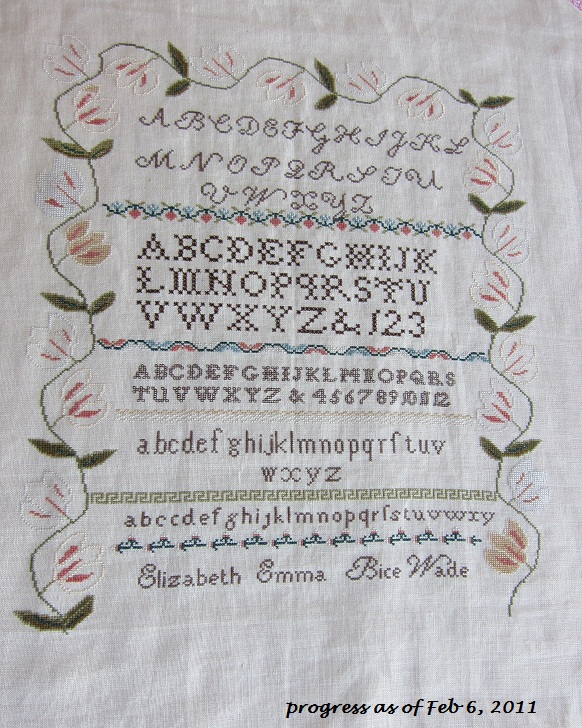 A B C D E F G H I J K L
M N O P Q R S T U
V W X Y Z
ABCDEFGHIJK
LMNOPQRSTU
VWXYZ & 123
ABCDEFGHIJKLMNOPQRS
TUVWXYZ & 4 5 6 7 8 9 10 11 12
abcdefghijklmnopqrſtuv
wxyz
abccdefghijklmnopqrſstuvwxy
Elizabeth Emma Bice Wade
progress as of Feb 6, 2011